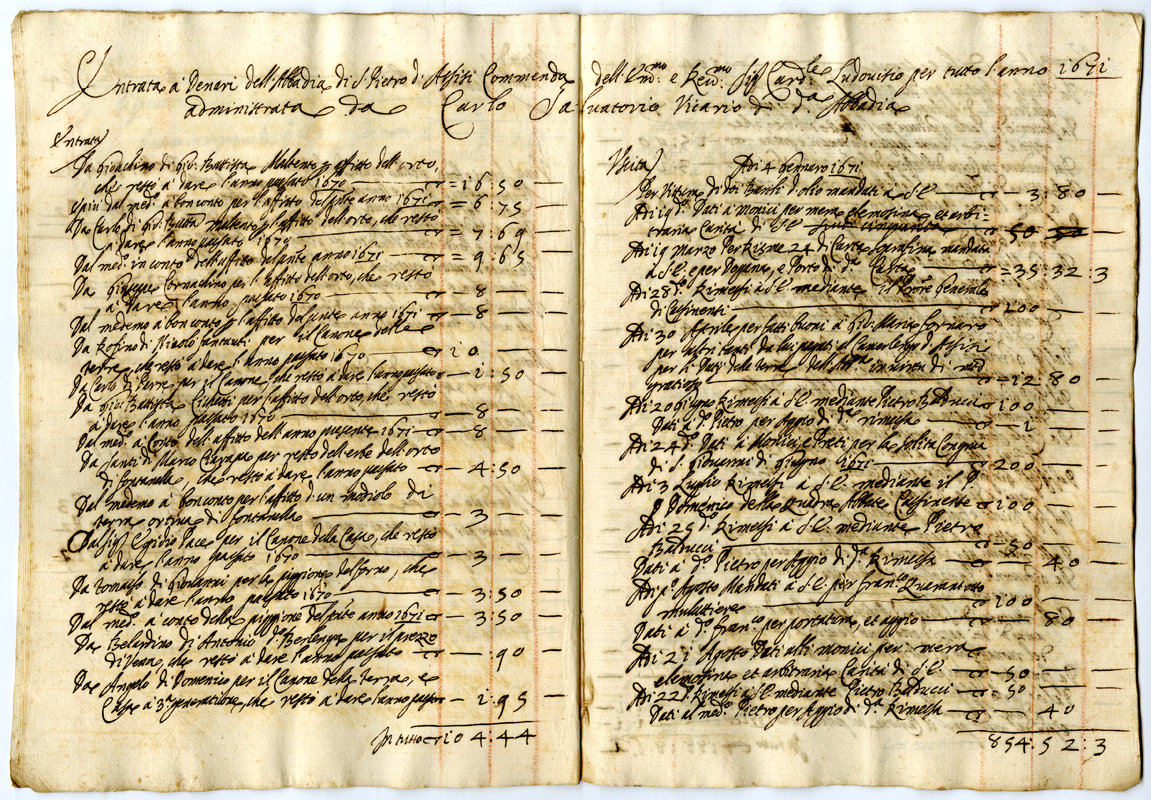 Entrata à Denari dell'Abbadia di S. Pietro d'Assisi Commenda dell'Em.mo e Rev.mo Sig.r Card.le Ludovitio per tutto l'anno 1671
administrata da Carlo Salvatorio Vicario di d.a Abbadia
Entrata
Da Gioachino di Gio: Battista per affitto dell'orto,
che restò à dare l'anno passato 1670 = 16: 50
E più dal med.o à bon conto per l'affitto del p̄nte anno 1671 = 6: 75
Da Carlo di Gio: Batta per l'affitto dell'orto, che restò
a dare l'anno passato 1670 = 7: 69
Dal med.o in conto dell'affitto del p̄nte anno 1671 = 9: 65
Da Giuseppe Cornachino per l'affitto dell'orto, che restò
à dare l'anno passato 1670 — 8
Dal medemo à bon conto per l'affitto del p̄nte anno 1671 — 8
Da Rosino di Nicolo per il Canone delle
terre, che restò à dare l'anno passato 1670 — 10
Da Carlo di per il Canone, che restò à dare l'anno passato — 1: 50
Da Gio: Battista per l'affitto dell'orto, che restò
à dare l'anno passato 1670 — 8
Dal med.o à Conto dell'affitto dell'anno presente 1671 — 8
Da Santi di Marco per resto dell'erbe dell'orto
di fontanella, che restò à dare l'anno passato — 4: 50
Dal medemo à bon conto per l'affitto d'un modiolo di
terra di fontanella — 3
Dal Sig.r Egidio Pace per il Canone della Casa, che restò
à dare l'anno passato 1670 — 3
Da Tomasso di Giovanni per la piggione del forno, che
restò à dare l'anno passato 1670 — 3: 50
Dal med.o à conto della piggione del p̄nte anno 1671 — 3: 50
Da Belardino di Antonio d.o per il prezzo
di Vena, che restò à dare l'anno passato — : 90
Da Angelo di Domenico per il Canone della terra, e
Casa à 3.a generatione, che restò à dare l'anno passato — 1: 95
In tutto 104: 44
Uscita
Adi 4 Gennaro 1671
Per Vittura di doi Barili d'olio mandati a S.E. — 3: 80
Adi 19 d.o Dati à Monici per mera elemosina, et arbi-
traria Carità di S.E. — 50
Adi 19 Marzo Per Risme 24 di Carta mandata
à S.E. e per Dogana, e Porto di d.a Carta = 35: 32: 3
Adi 28 d.o Rimessi à S.E. mediante il Prore Generale
di Casinenti — 200
Adi 30 Aprile per fatti buoni à Gio: Maria fornaro
per altri tanti da lui pagati al d'Assisi
per li Dati delle terre
— 12: 80
Adi 20 Giugno Rimessi à S.E. mediante Pietro Balducci — 100
Dati à d.o Pietro per Aggio di d.a rimessa — 1
Adi 24 d.o Dati à Monici e Preti per la solita Congrua
di S. Giovanni di Giugno 1671 — 200
Adi 3 Luglio Rimessi à S.E. mediante il P.
D. Domenico della Quadra Abbate Casinente — 100
Adi 25 d.o Rimessi à S.E. mediante Pietro
Balducci — 50
Dati à d.o Pietro per Aggio di d.a Rimessa — : 40
Adi p.o Agosto Mandati à S.E. per fran.co Quarantotto
mulattiere — 100
Dati à d.o fran.co per portatura, et aggio — : 80
Adi 21 Agosto Dati alli Monici per mera
elemosina et arbitraria Carità di S.E. — 50
Adi 22 d.o Rimessi à S.E. mediante Pietro Balducci = 50
Dati al med.o Pietro per Aggio di d.a Rimessa — : 40
854: 52: 3